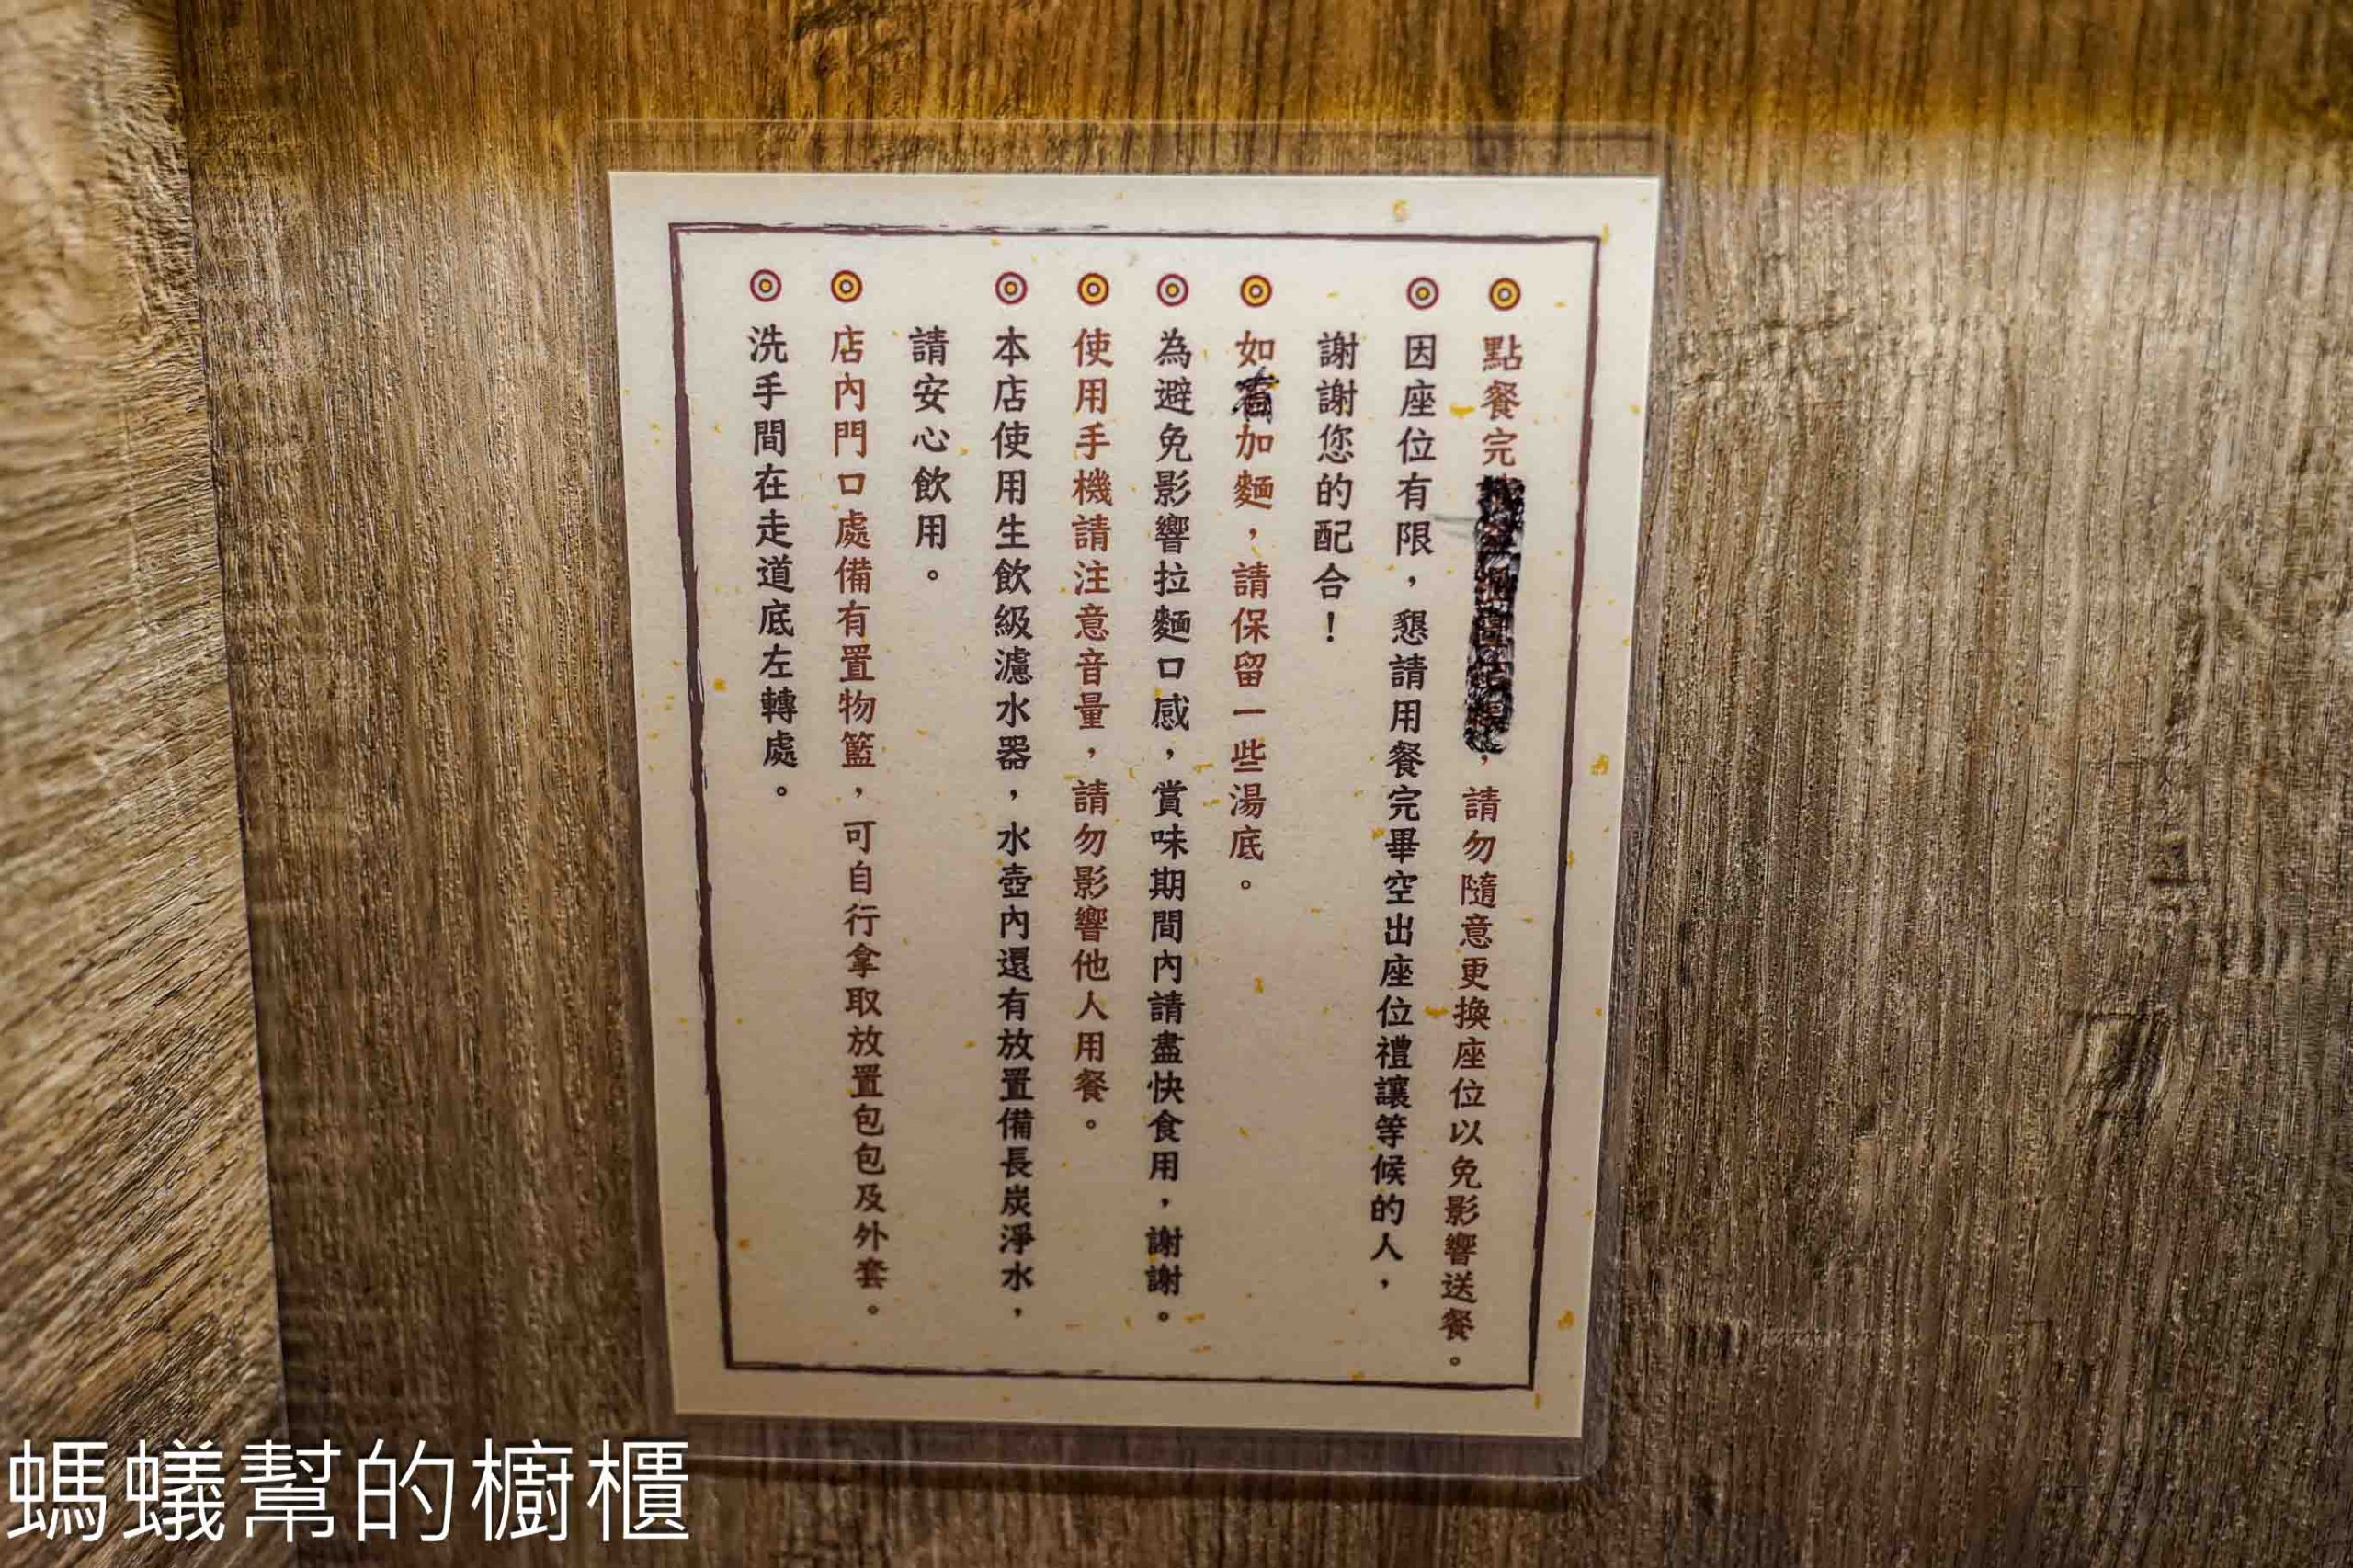 ◎點餐完，請勿隨意更換座位以免影響送餐。
◎因座位有限，懇請用餐完畢空出座位禮讓等候的人，
謝謝您的配合！
◎如加麵，請保留一些湯底。
◎為避免影響拉麵口感，賞味期間內請盡快食用，謝謝。
◎使用手機請注意音量，請勿影響他人用餐。
◎本店使用生飲級濾水器，水壺內還有放置備長炭淨水，
請安心飲用。
◎店內門口處備有置物籃，可自行拿取放置包包及外套。
◎洗手間在走道底左轉處。
螞蟻幫的櫥櫃